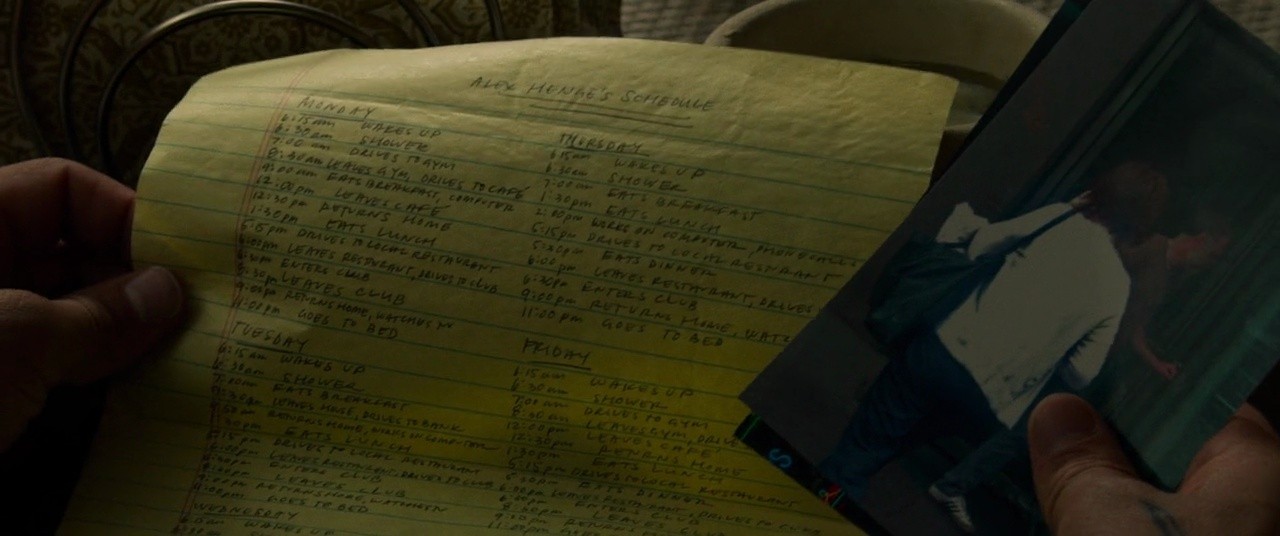 ALEX HENGE'S SCHEDULE
MONDAY
6:15am WAKES UP
6:30am SHOWER
7:00 am DRIVES TO GYM
8:30am LEAVES GYM, DRIVES TO CAFE
9:00am EATS BREAKFAST, COMPUTER
12:00pm LEAVES CAFE
12:30pm RETURNS HOME
1:30pm EATS LUNCH
5:15pm DRIVES TO LOCAL RESTAURANT
6:00pm LEAVES RESTAURANT, DRIVES TO CLUB
6:30pm ENTERS CLUB
LEAVES CLUB
9:00pm RETURNS HOME, WATCHES TV
11:00pm GOES TO BED
TUESDAY
6:15am WAKES UP
6:30am SHOWER
7:00am EATS BREAKFAST
LEAVES HOUSE, DRIVES TO BANK
RETURNS HOME, WORKS ON COMPUTER
EATS LUNCH
DRIVES TO LOCAL RESTAURANT
LEAVES RESTAURANT, DRIVES TO CLUB
ENTERS CLUB
LEAVES CLUB
GOES TO BED
WEDNESDAY
WAKES UP
THURSDAY
6:15am WAKES UP
6:30am SHOWER
7:00am EATS BREAKFAST
1:30pm EATS LUNCH
2:00pm WORKS ON COMPUTER, PHONE
5:15pm DRIVES TO LOCAL RESTURANT
5:30pm EATS DINNER
6:00 pm LEAVES RESTAURANT, DRIVES
6:30pm ENTERS CLUB
9:00pm RETURNS HOME, WAT
11:00pm GOES TO BED
FRIDAY
6:15am WAKES UP
6:30am SHOWER
7:00am DRIVES TO GYM
8:30am LEAVES GYM, DRIV
12:00pm LEAVES CAFE
12:30pm RETURNS HOME
1:30pm EATS LUNCH
5:15pm DRIVES TO LOCAL RESTAURANT
5:30pm EATS DINNER
6:00pm LEAVES RESTAURANT, DRIVES TO CLUB
ENTERS CLUB
LEAVES
11:00pm